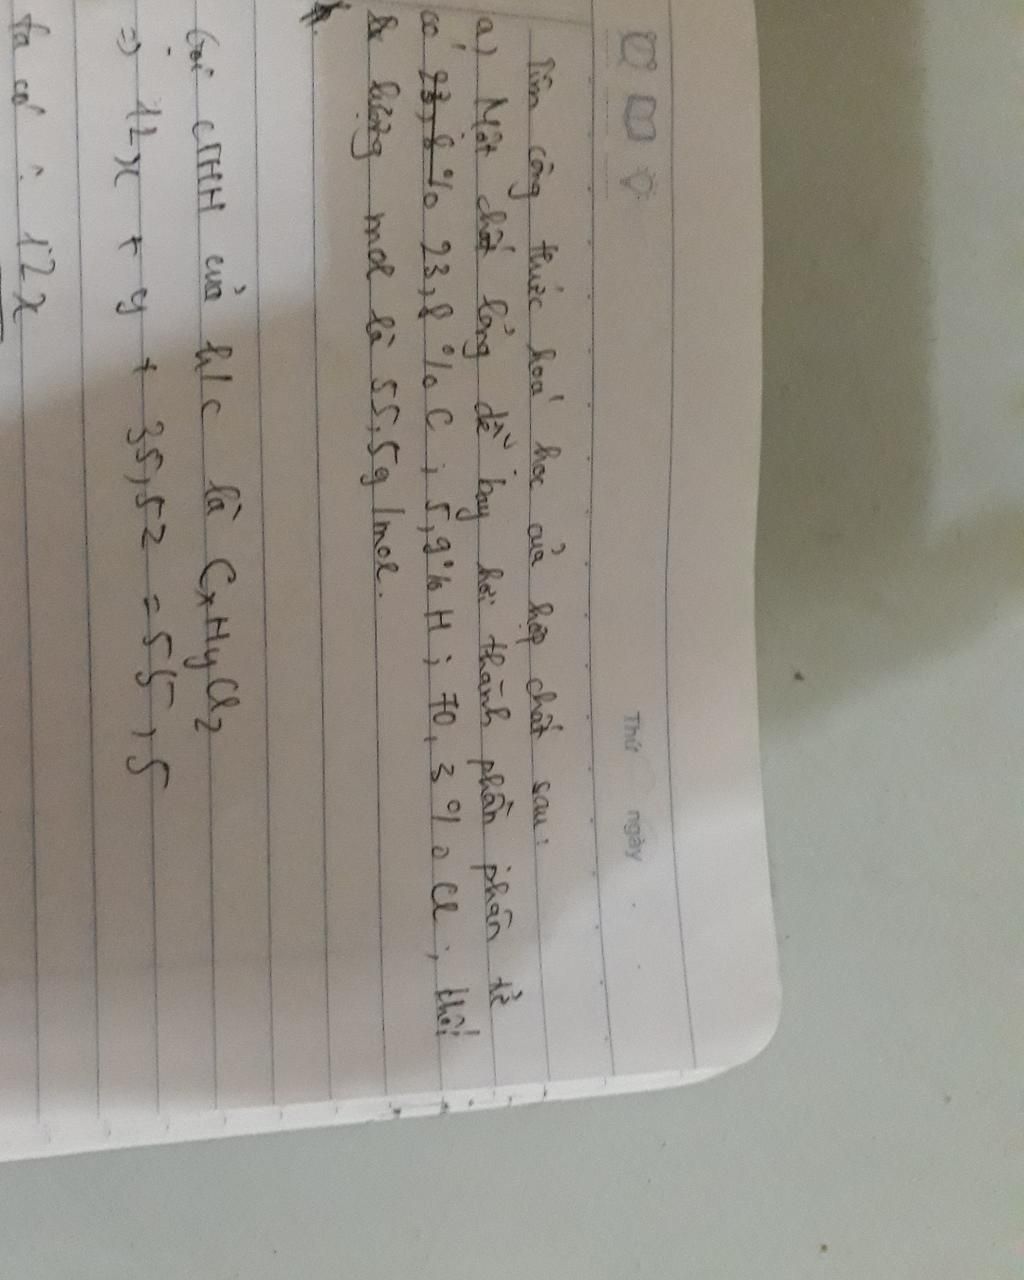 Thứ ngày
Tìm công thức hoá học của hợp chất sau:
a) Một chất lỏng dễ bay hơi thành phần phân tử
có 23,8% 23,8%C; 5,9%H; 70,3%Cl; khối
lượng mol là 55,5g/mol.
Gọi CTHH của h/c là CxHyClz
=> 12x + y + 35,5z = 55,5
Ta có: 12x